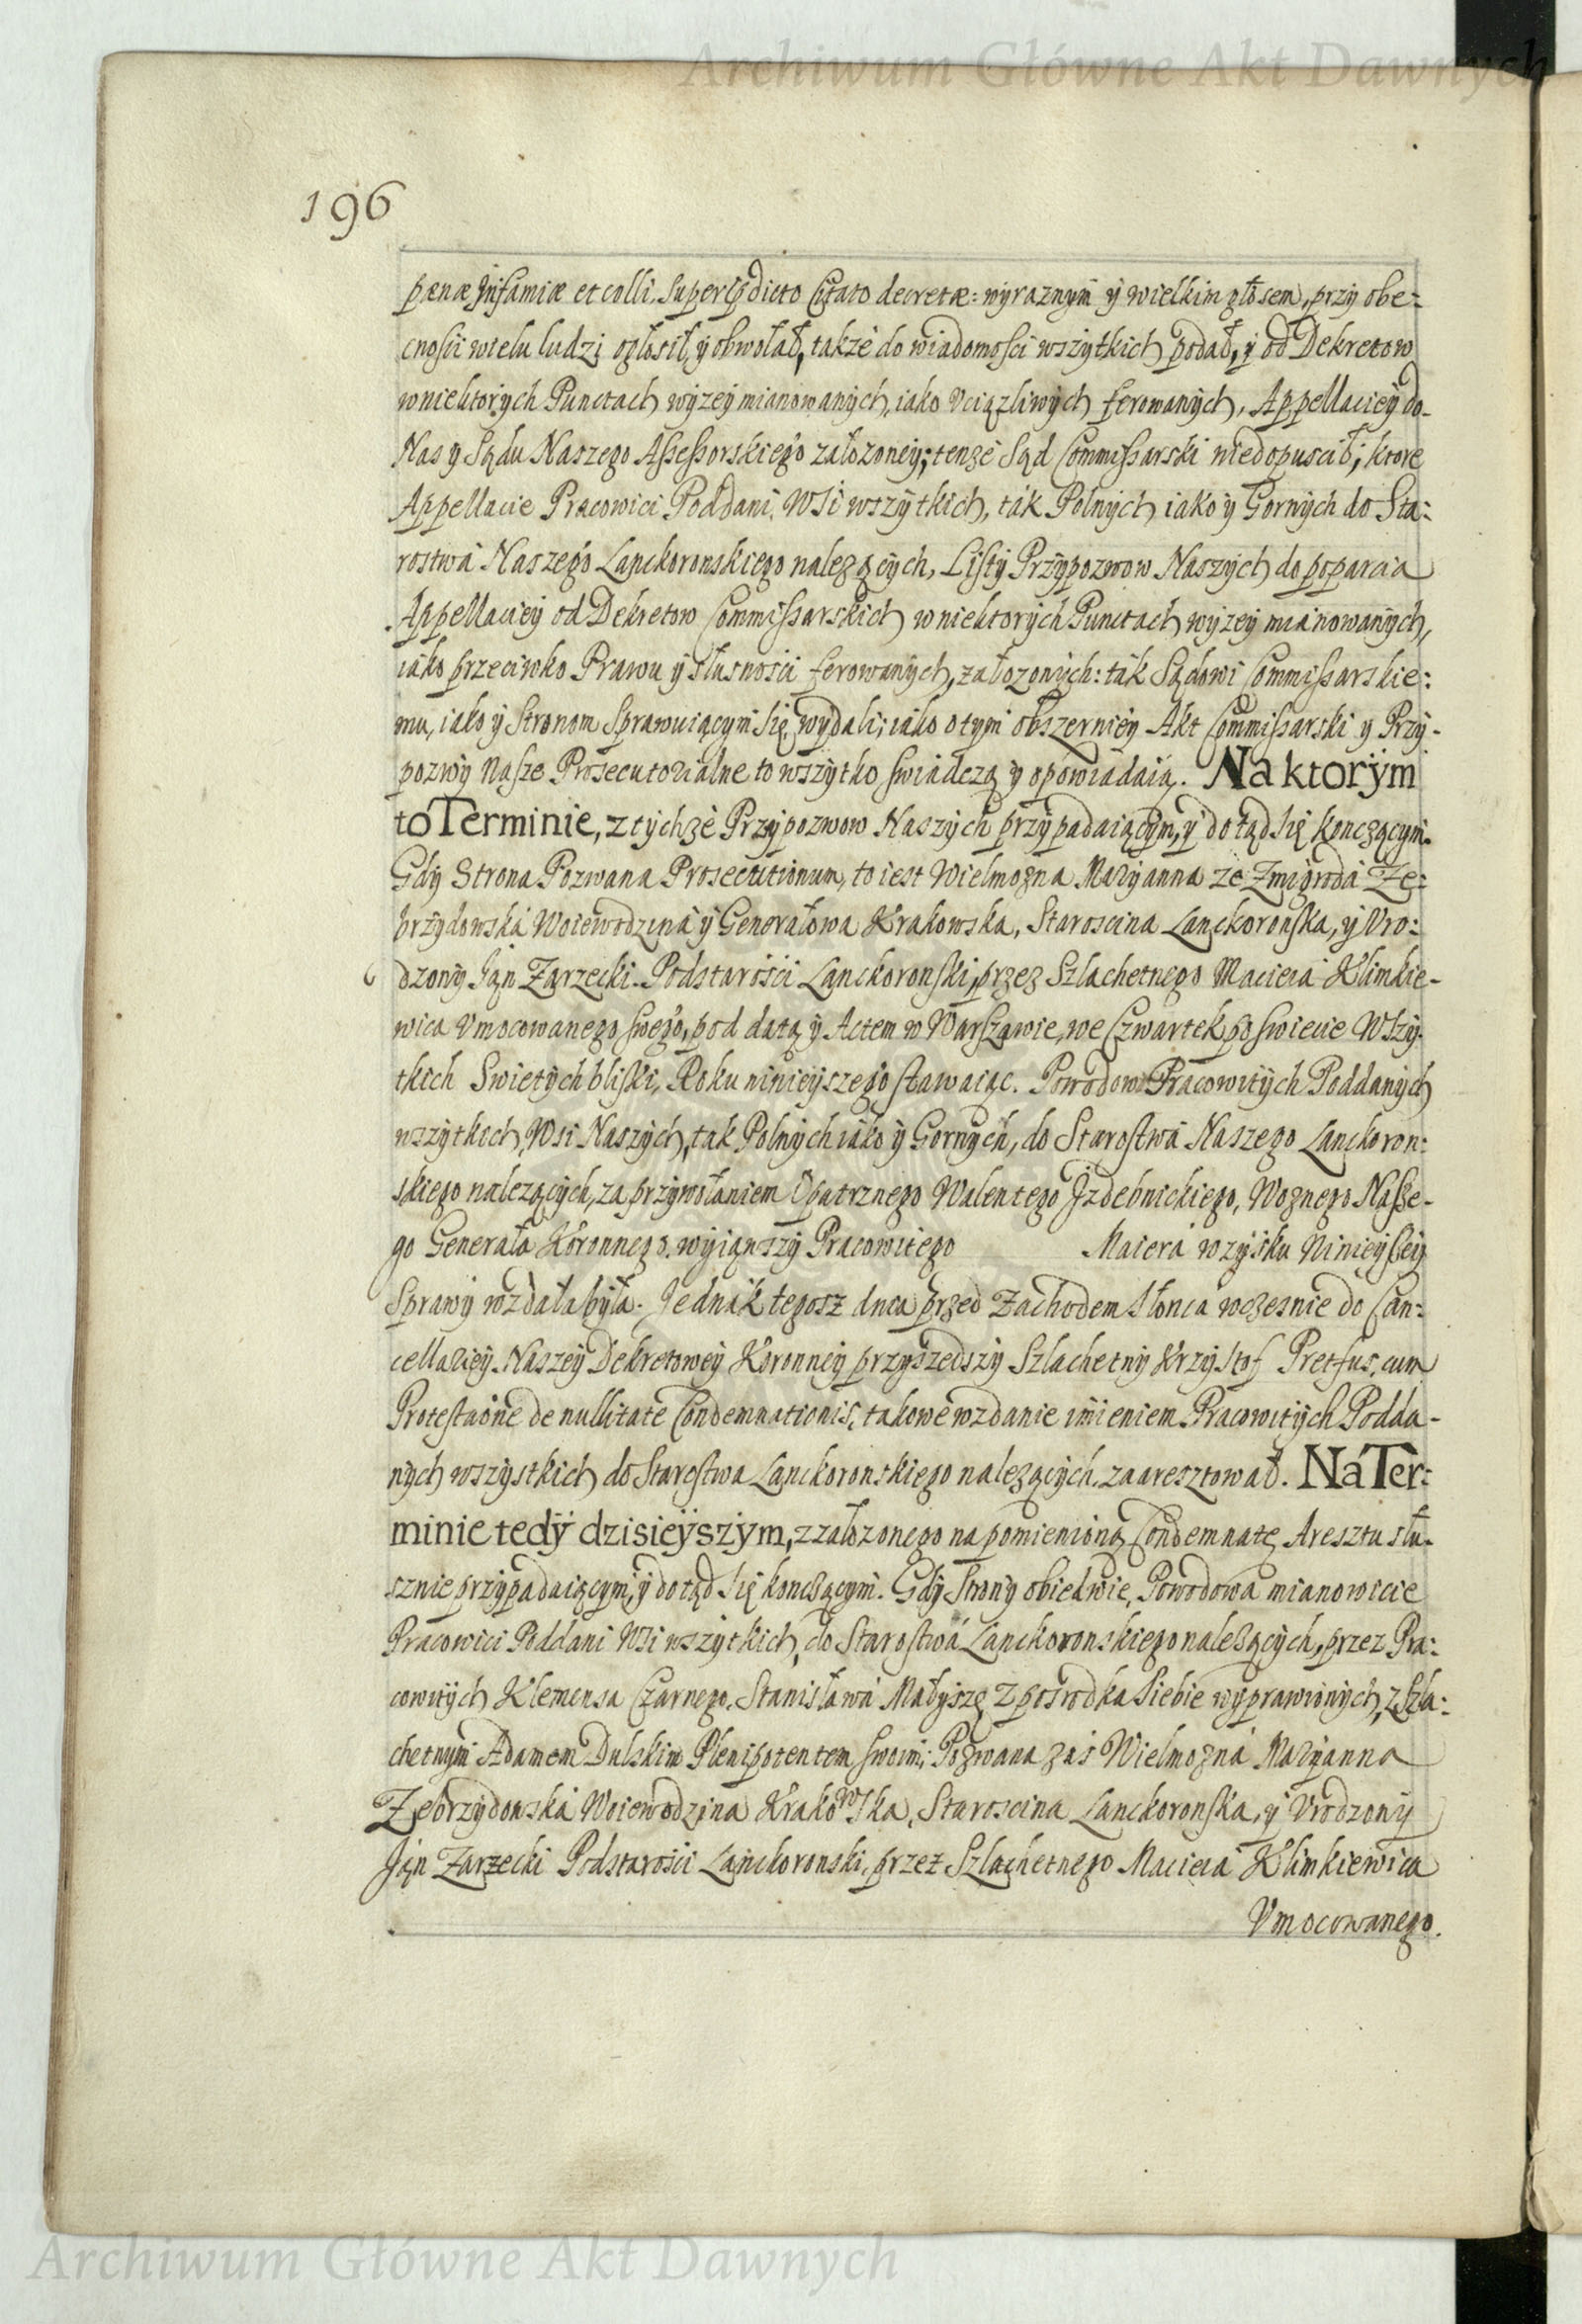 Archiwum Główne Akt Dawnych
196
pænæ Infamiæ et colli, super prædicto Citato decretæ: wyraznym y wielkim głosem, przy obe:
cnosci wielu ludzi ogłosił, y obwołał, takze do wiadomosci wszytkich podał, y od Dekretow
w niektorych Punctach wyzey mianowanych, iako Vciązliwych ferowanych, Appellaciey do-
Nas y Sądu Naszego Assessorskiego załozoney; tenze Sąd Commissarski niedopuscił; ktore
Appellacie Pracowici Poddani, Wsi wszytkich, ták Polnych iako y Gornych do Sta:
rostwá Naszego Lanckoronskiego nalezących, Listy Przypozwow Naszych do poparcia
Appellaciey od Dekretow Commissarskich w niektorych Punctach wyzey miánowanych,
iáko przeciwko Prawu y słusnosci ferowanych, załozonych: ták Sądowi Commissarskie:
mu, iako y Stronom Sprawuiącym się, wydali; iáko o tym obszerniey Akt Commissarski y Przy-
pozwy Nasze Prosecutorialne to wszytko swiádczą y opowiádaią. Na ktorym
to Terminie, z tychze Przypozwow Naszych przypadaiącym, y dotąd się konczącym.
Gdy Strona Pozwana Prosecutionum, to iest Wielmozna Maryanna ze Zmigrodá Ze:
brzydowská Woiewodziná y Generałowa Krakowska, Staroscina Lanckoronska, y Vro:
dzony Ján Zarzecki Podstarosci Lanckoronski, przez Szlachetnego Macieiá Klimkie-
wica Vmocowanego swego, pod datą y Actem w Warszawie, we Czwartek po swiecie Wszy-
tkich Swietych bliski, Roku ninieyszego stawaiąc. Powodow Pracowitych Poddanych
wszytkich Wsi Naszych, tak Polnych iáko y Gornych, do Starostwá Naszego Lanckoron:
skiego nalezących, za przywołaniem Opatrznego Walentego Jzdebnickiego, Woznego Nasze-
go Generałá Koronnego, wyiąwszy Pracowitego Maierá w zysku Ninieyszey
Sprawy wzdała była. Jednák tegosz dnia przed Zachodem słonca wczesnie do Can:
cellariey Naszey Dekretowey Koronney przyszedszy Szlachetny Krzysztof Pretfus, cum
Protestaōne de nullitate Condemnationis, takowe wzdanie imieniem Pracowitych Podda-
nych wszystkich do Starostwa Lanckoronskiego nalezących, zaaresztował. Ná Ter:
minie tedy dzisieyszym, z załozonego na pomienioną Condemnatę Aresztu słu-
sznie przypadaiącym, y dotąd się konczącym. Gdy Strony obiedwie, Powodowa mianowicie
Pracowici Poddani Wsi wszytkich, do Starostwá Lanckoronskiego nalezących, przez Pra:
cowitych Klemensa Czarnego, Stanisławá Małyszę z posrodka siebie wyprawionych, z Szla:
chetnym Adamem Dulskim Plenipotentem swoim; Pozwana zás Wielmozná Maryanna
Zebrzydowská Woiewodzina Krakowska, Staroscina Lanckoronska, y Vrodzony
Ján Zarzecki Podstarosci Lanckoronski, przez Szlachetnego Macieiá Klimkiewica
Vmocowanego.
Archiwum Główne Akt Dawnych